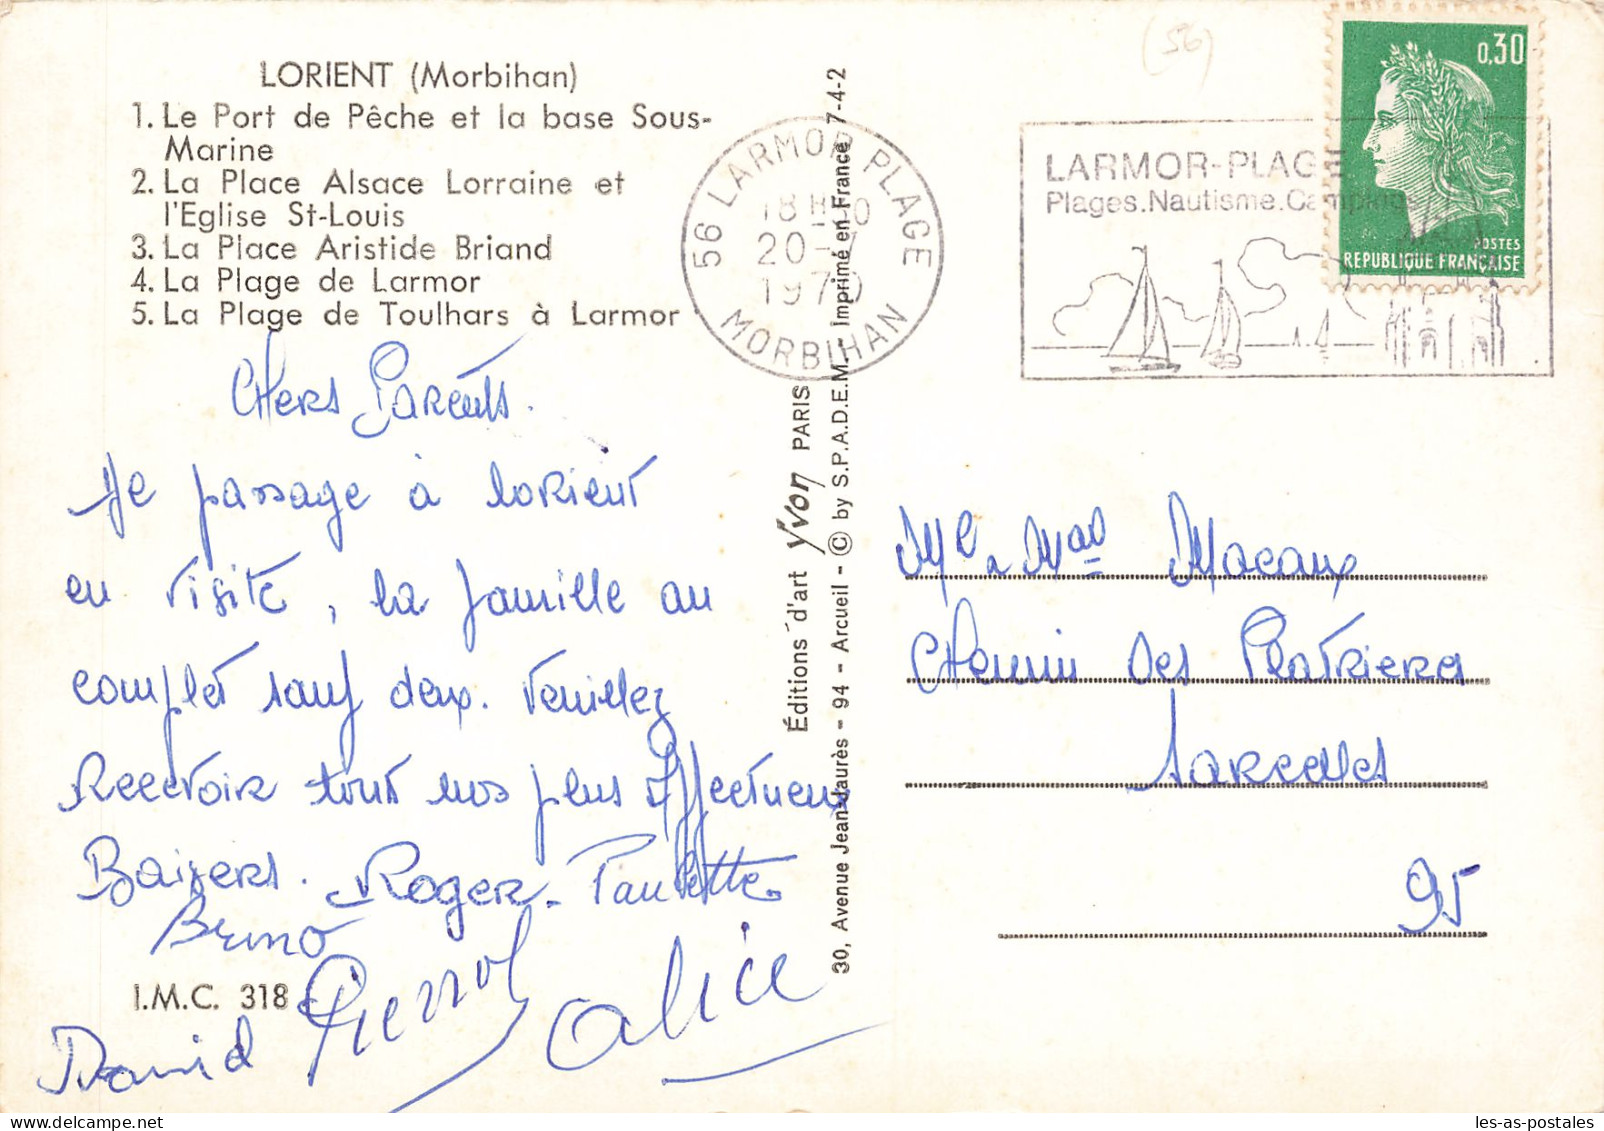 LORIENT (Morbihan)
1. Le Port de Pêche et la base Sous-
Marine
2. La Place Alsace Lorraine et
l'Eglise St-Louis
3. La Place Aristide Briand
4. La Plage de Larmor
5. La Plage de Toulhars à Larmor
Chers Parents.
De passage à Lorient
en visite, la famille au
complet sauf deux. Veuillez
Recevoir tous nos plus Affectueux
Baisers. Roger - Paulette
Bruno
I.M.C. 318
David Pierrot Alice
Éditions d'art Yvon PARIS
30, Avenue Jean-Jaurès - 94 - Arcueil - © by S.P.A.D.E.M. - Imprimé en France 7-4-2
56 LARMOR PLAGE
18H 0
20-7
1970
MORBIHAN
(56)
LARMOR-PLAGE
Plages.Nautisme.Campings
0,30
POSTES
REPUBLIQUE FRANÇAISE
Chemin des Platrieres
Sarcelles
95
les-as-postales